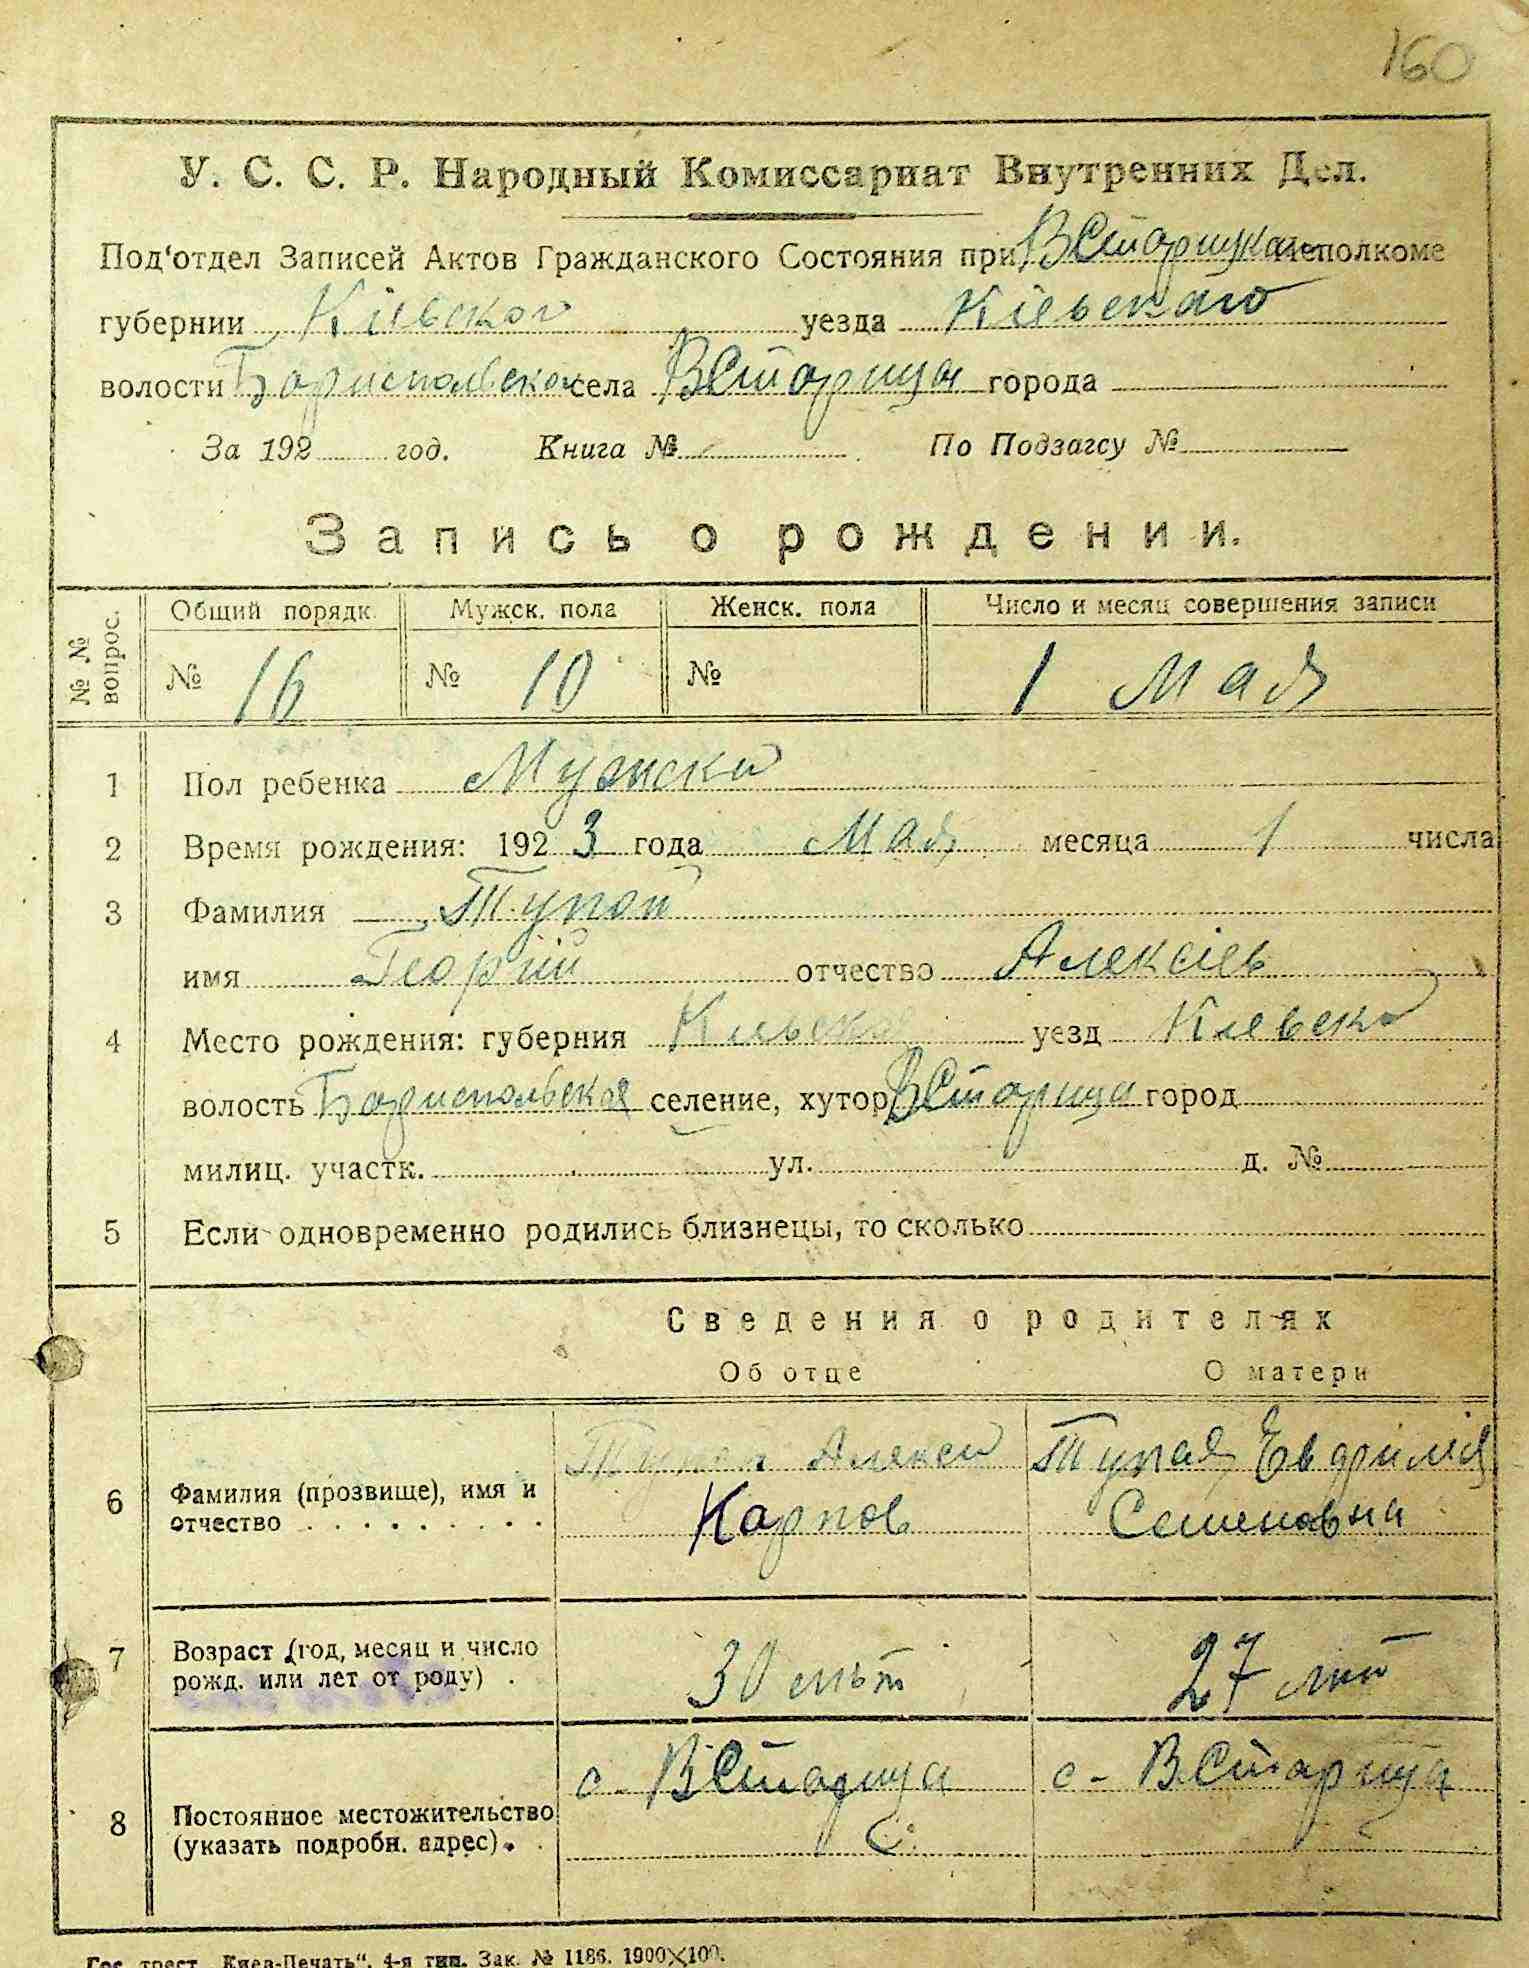 160
У. С. С. Р. Народный Комиссариат Внутренних Дел.
Под'отдел Записей Актов Гражданского Состояния при ВСтарицком исполкоме
губернии Кіевской уезда Кіевскаго
волости Бориспольской села ВСтарицы города
За 192 год. Книга № По Подзагсу №
Запись о рождении.
№ № вопрос. Общий порядк. Мужск. пола Женск. пола Число и месяц совершения записи
№ 16 № 10 № 1 Мая
1 Пол ребенка Мужски
2 Время рождения: 1923 года Мая месяца 1 числа
3 Фамилия Тупой
имя Георгій отчество Алексіев
4 Место рождения: губерния Киевская уезд Киевски
волость Бориспольская селение, хутор ВСтарица город
милиц. участк. ул. д. №
5 Если одновременно родились близнецы, то сколько
Сведения о родителях
Об отце О матери
Тупой Алекси Тупая Евдокимія
6 Фамилия (прозвище), имя и
отчество Карпов Семеновна
7 Возраст (год, месяц и число
рожд. или лет от роду) 30 лет 27 лет
с. ВСтарица с. ВСтарица
8 Постоянное местожительство
(указать подробн. адрес).
Гос. трест „Киев-Печать“, 4-я тип. Зак. № 1186. 1900×100.